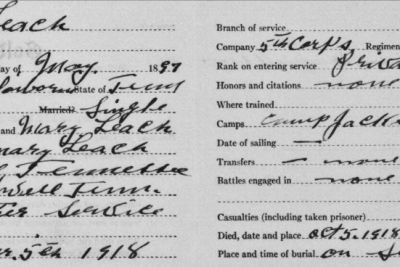 Leach
Branch of service
Company 5th Corps Regimen
ay of May 1897
Rank on entering service Priva
State of Tenn
Honors and citations none
Married? Single
Where trained
and Mary Leach
Camps Camp Jack
Mary Leach
Date of sailing —
Tennessee
Transfers — none
Tenn.
Battles engaged in — none
Service
Casualties (including taken prisoner)
5th 1918
Died, date and place Oct 5, 1918
Place and time of burial on